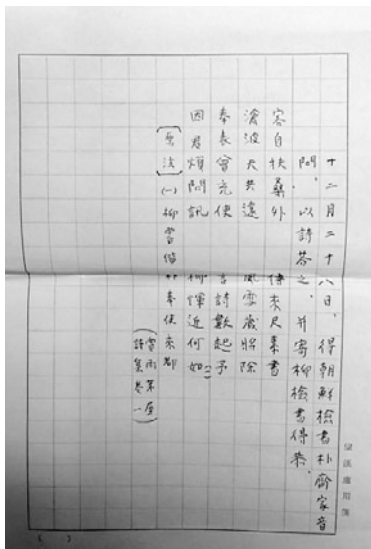 十二月二十八日、得朝鮮檢書朴齊家音
問、以詩答之、并寄柳檢書得恭、
客自扶桑外 傳來尺素書
滄波天共遠 風雪歲將除
奉表曾充使 言詩數起予
因君煩問訊 柳惲近何如(一)
[原注](一)柳嘗偕朴奉使來都
(賞雨茅屋
詩集卷一)
望漢廬用箋